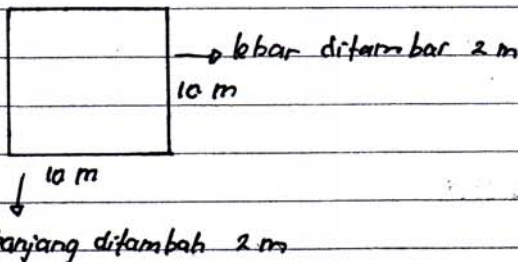 lebar ditambar 2 m
10 m
10 m
panjang ditambah 2 m